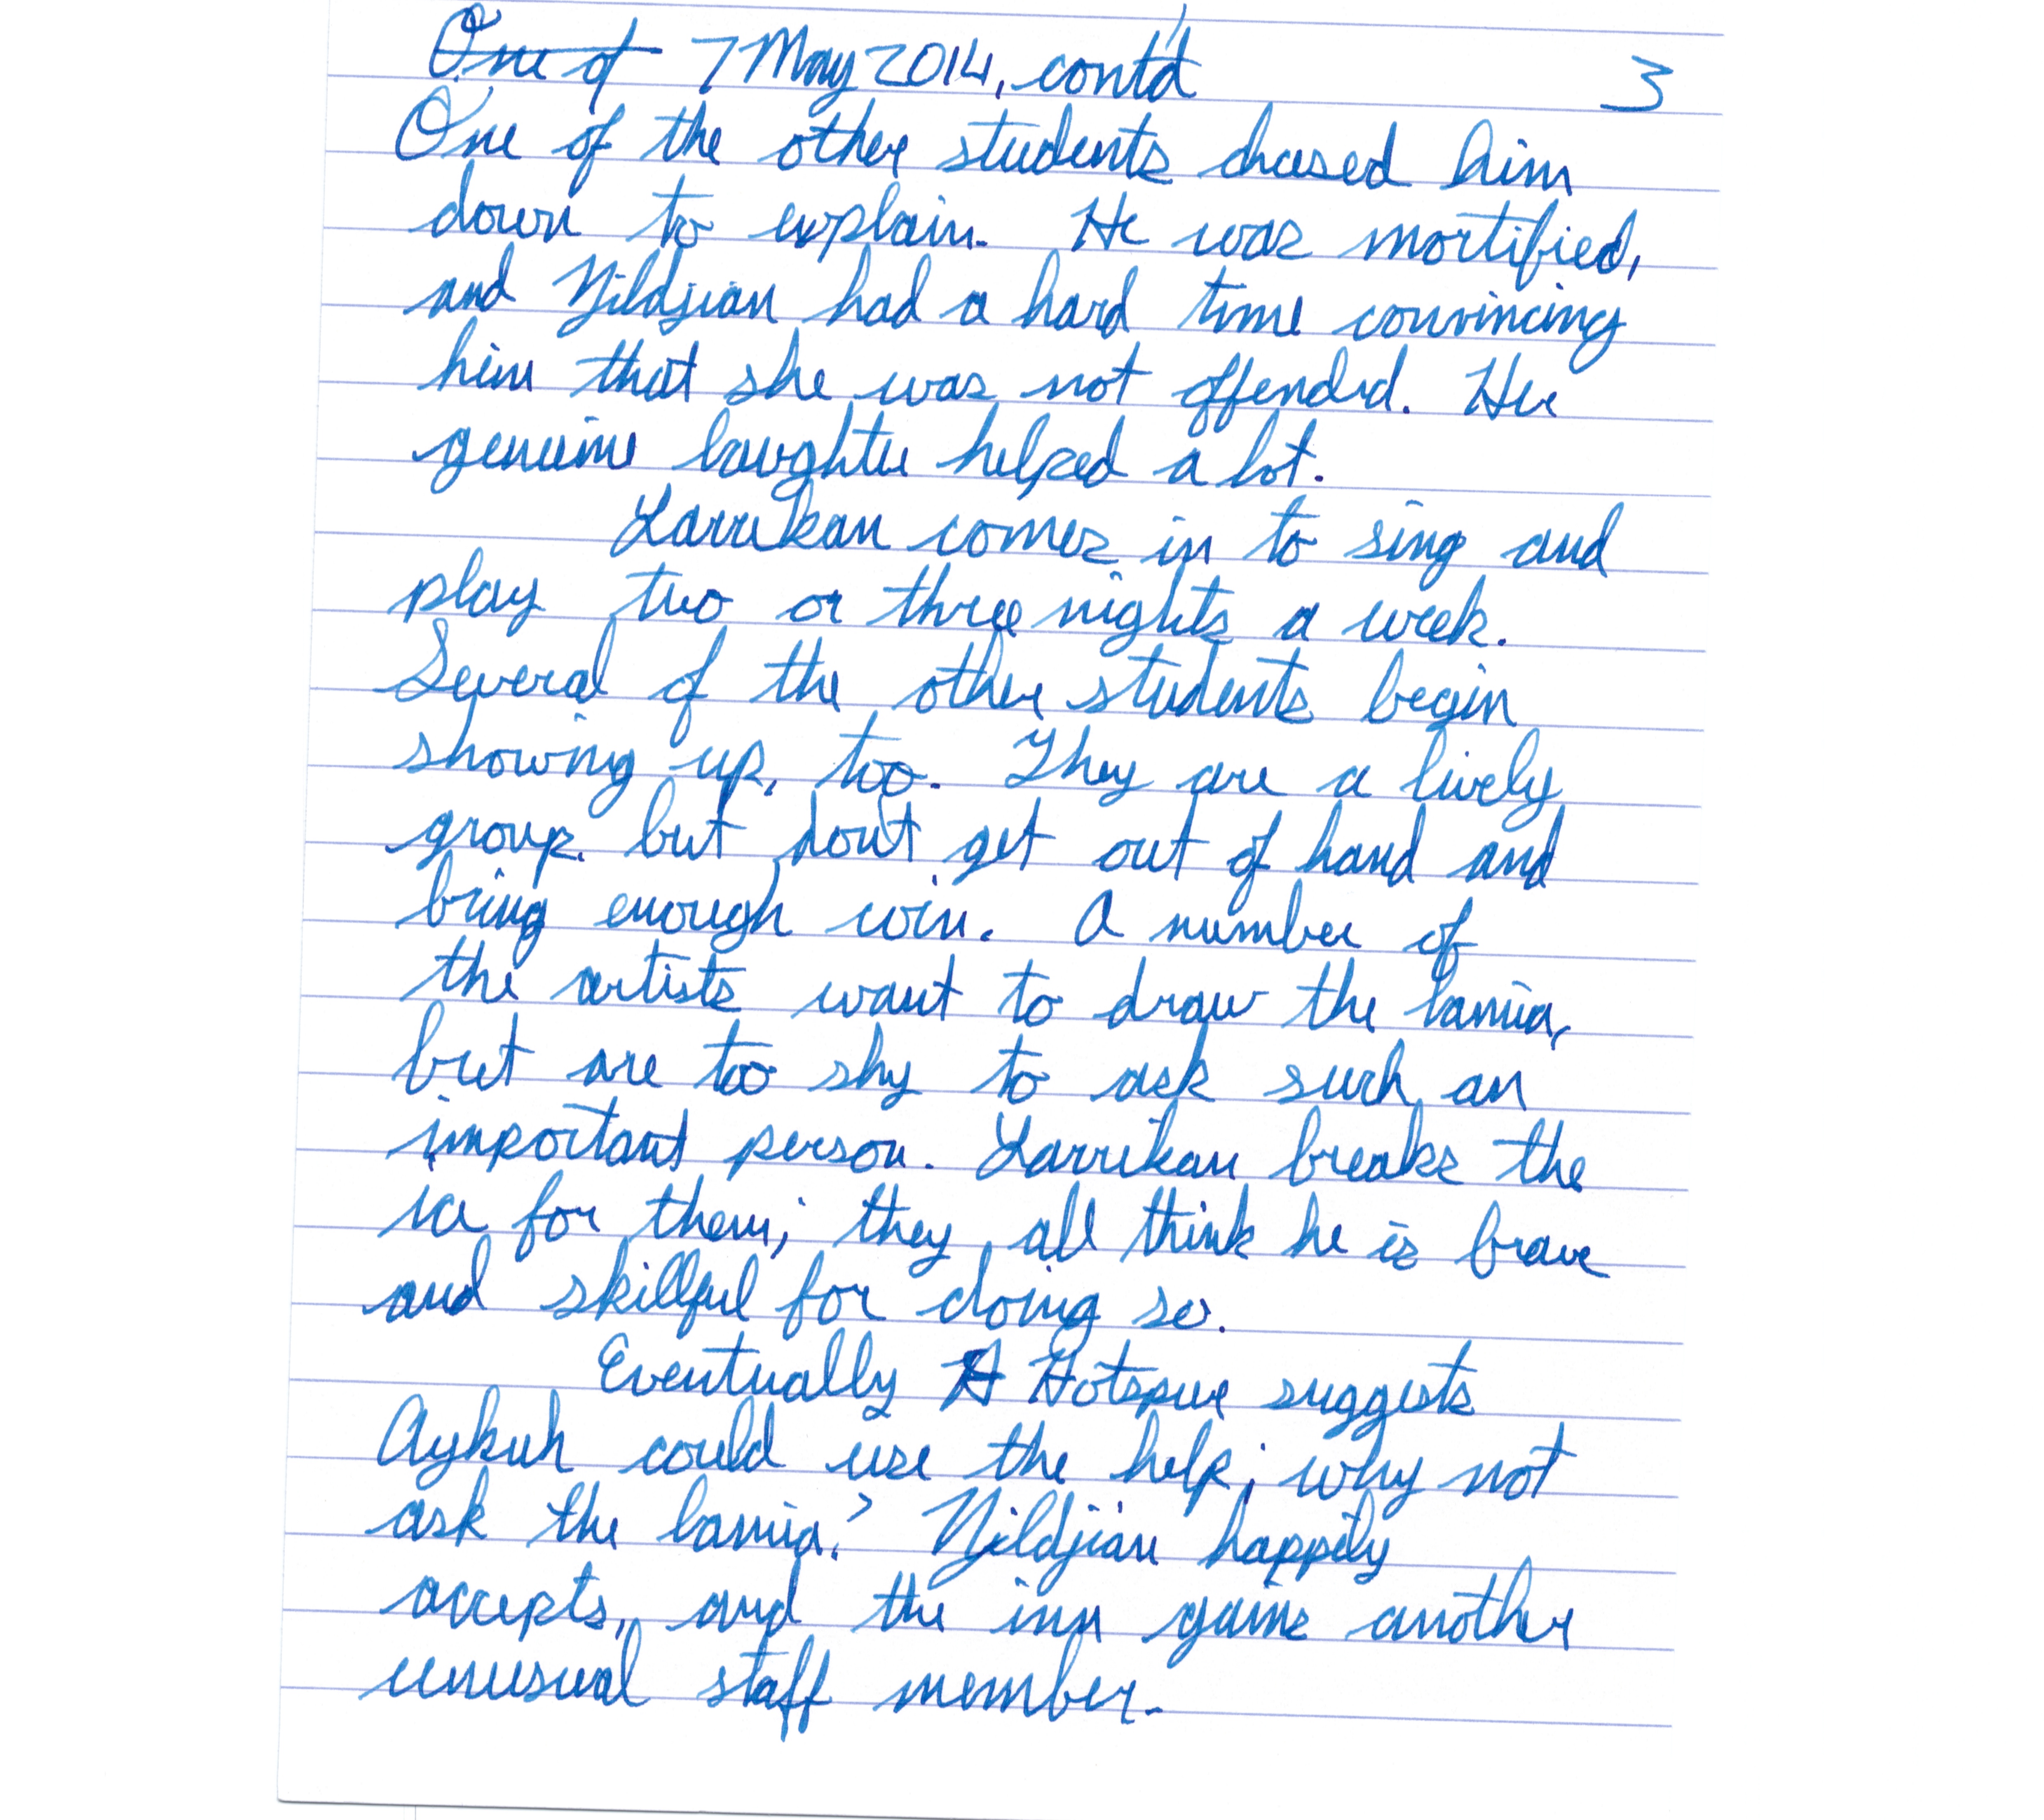 One of 7 May 2014, cont'd 3
One of the other students chased him
down to explain. He was mortified,
and Yildjian had a hard time convincing
him that she was not offended. Her
genuine laughter helped a lot.
Larrikan comes in to sing and
play two or three nights a week.
Several of the other students begin
showing up, too. They are a lively
group, but don't get out of hand and
bring enough coin. A number of
the artists want to draw the lamia,
but are too shy to ask such an
important person. Larrikan breaks the
ice for them; they all think he is brave
and skillful for doing so.
Eventually H Hotspur suggests
Aykuh could use the help; why not
ask the lamia? Yildjian happily
accepts, and the inn gains another
unusual staff member.